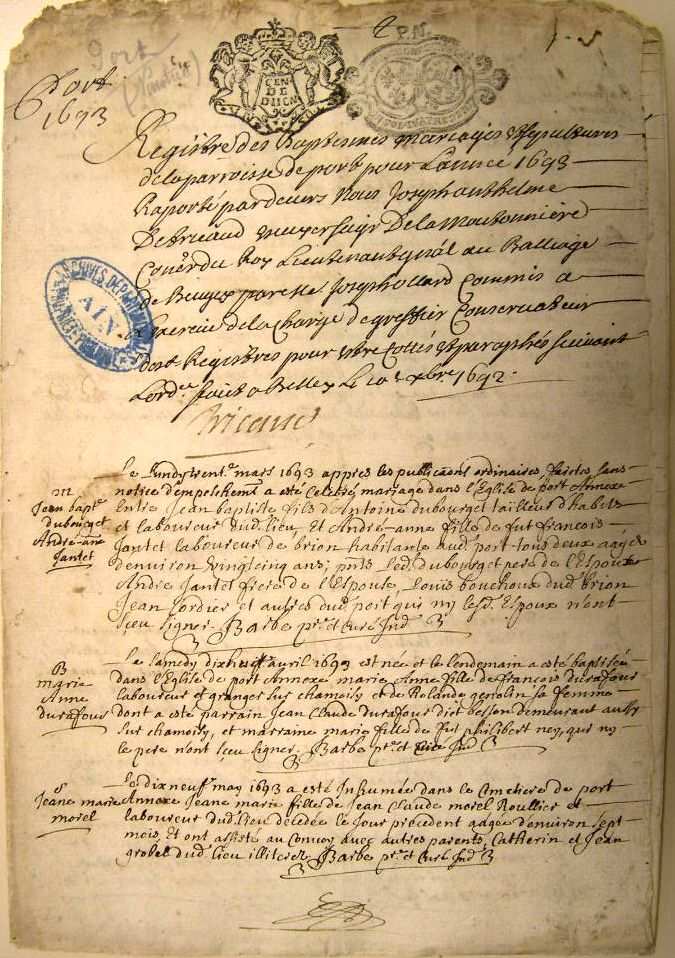 Port
1693
Port
P.N.
GEN
DE
DIION
Registre des Baptesmes mariages & sepultures
de la parroisse de port pour L'annee 1693
Raporté pardevers Nous Joseph anthelme
De tricaud De La Moutonniere
Con.er du Roy Lieutenant gnãl au Balliage
de Beugey par Me Joseph ollard Commis a
L'exercice de la Charge de greffier Conservateur
dest Registres pour estre Cottés & paraphés suivant
L'ord.ce fait a Belley Le 10.e xbre 1692.
Tricaud
ARCHIVES DEPART
AIN
Le Lundy trent.e mars 1693 appres les publicãons ordinaires, faictes sans
notice d'empeschem.t a esté celebré mariage dans l'Eglise de port Annexe
Entre Jean baptiste fils d'Antoine dubourget tailleur d'habits
et laboureur dud. lieu, Et André-anne fille de fut francois
Jantet laboureur de brion habitante aud. port tous deux aagés
d'environ vingt cinq ans; pnts led. dubourget pere de l'Espoux
Andre Jantet frere de l'Espouse, Louis bouchoux dud. brion
Jean Cordier et autres dud. port qui ny lesd. Espoux n'ont
sçeu signer. Barbe p.re et Curé Ind.
m
Jean bapt.e
dubourget
André-ane
Jantet
Le samedy dixhuit avril 1693 est née et le lendemain a esté baptisée
dans l'Eglise de port Annexe marie Anne fille de francois durafour
laboureur et granger sur chamoisy et de Rolande genolin sa femme
dont a esté parrain Jean Claude durafour dict besson demeurant aussy
sur chamoisy, et marraine marie fille de fut philibert ney, qui ny
le pere n'ont sçeu signer. Barbe p.re et Curé Ind.
B
marie
Anne
durafour
Le dix neuf may 1693 a esté Inhumée dans le Cimetiere de port
Annexe Jeane marie fille de Jean Claude morel Roullier et
laboureur dud. lieu decedée le Jour precedent aagée d'environ sept
mois, Et ont assisté au Convoy avec autres parents, Catherin et Jean
grobel dud. lieu illiterez Barbe p.re et Curé Ind.
S
Jeane marie
morel